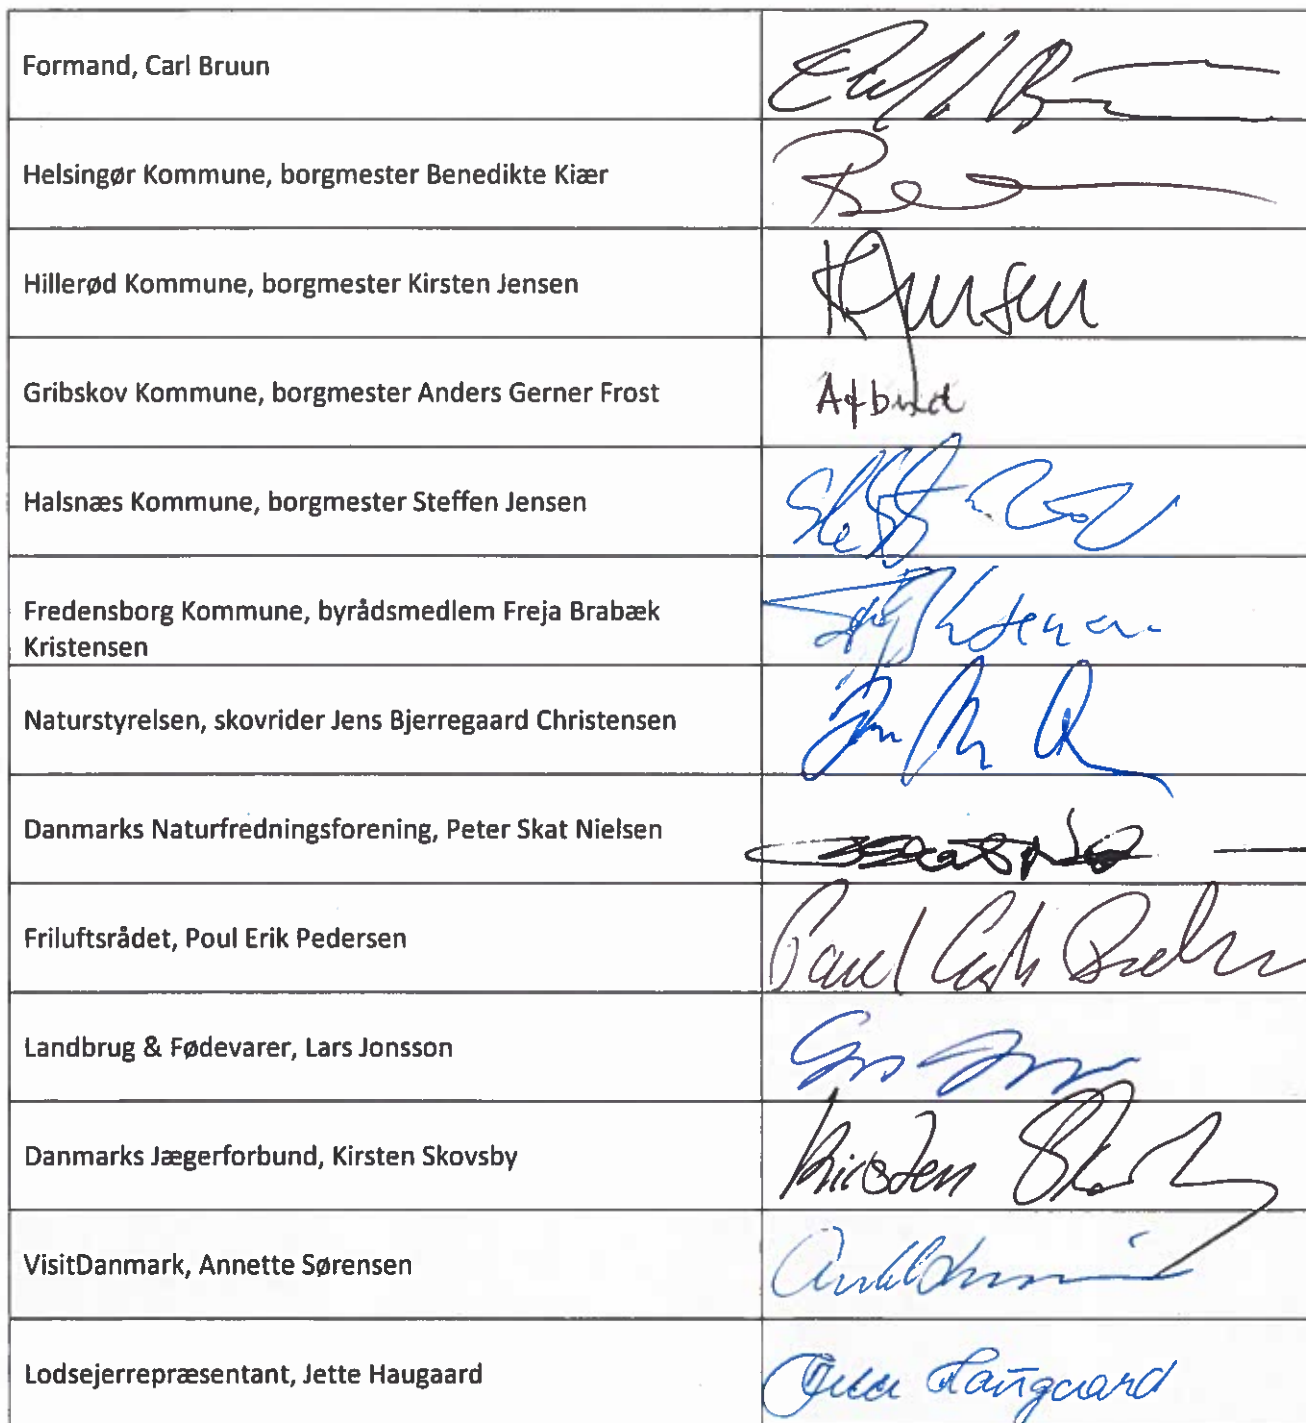 Formand, Carl Bruun
Helsingør Kommune, borgmester Benedikte Kiær
Hillerød Kommune, borgmester Kirsten Jensen
KJensen
Gribskov Kommune, borgmester Anders Gerner Frost
Afbud
Halsnæs Kommune, borgmester Steffen Jensen
Fredensborg Kommune, byrådsmedlem Freja Brabæk
Kristensen
Naturstyrelsen, skovrider Jens Bjerregaard Christensen
Danmarks Naturfredningsforening, Peter Skat Nielsen
Friluftsrådet, Poul Erik Pedersen
Poul Erik Pedersen
Landbrug & Fødevarer, Lars Jonsson
Danmarks Jægerforbund, Kirsten Skovsby
Kirsten Skovsby
VisitDanmark, Annette Sørensen
Lodsejerrepræsentant, Jette Haugaard
Jette Haugaard